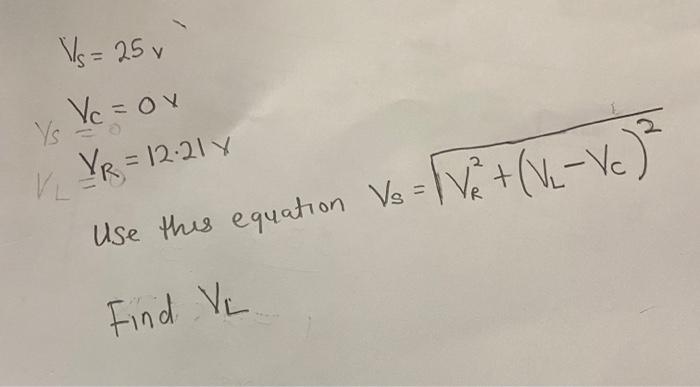 Vs = 25 v
Vc = 0 v
Vs = 0
VR = 12.21 v
VL =
Use this equation Vs = √VR² + (VL - Vc)²
Find VL